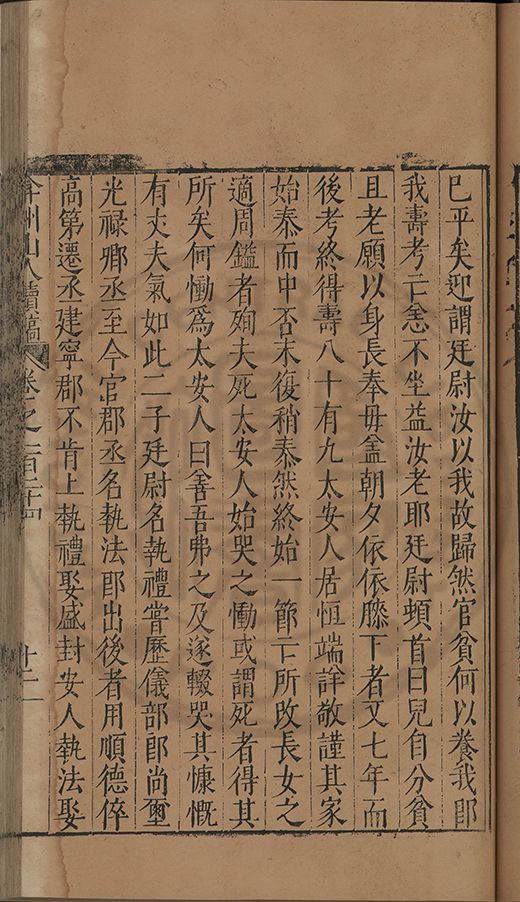 已平矣迎謂廷尉汝以我故歸然官貧何以養我即
我壽考亡恙不坐益汝老耶廷尉頓首曰兒自分貧
且老願以身長奉母盆朝夕依依膝下者又七年而
後考終得壽八十有九太安人居恒端詳敬謹其家
始泰而中否末復稍泰然終始一節亡所改長女之
適周鎰者殉夫死太安人始哭之慟或謂死者得其
所矣何慟爲太安人曰善吾弗之及遂輟哭其慷慨
有丈夫氣如此二子廷尉名執禮嘗歷儀部郎尚璽
光禄卿丞至今官郡丞名執法即出後者用順德倅
高第遷丞建寧郡不肯上執禮娶盛封安人執法娶
弇州山人續稿 卷之一百二十四 十二